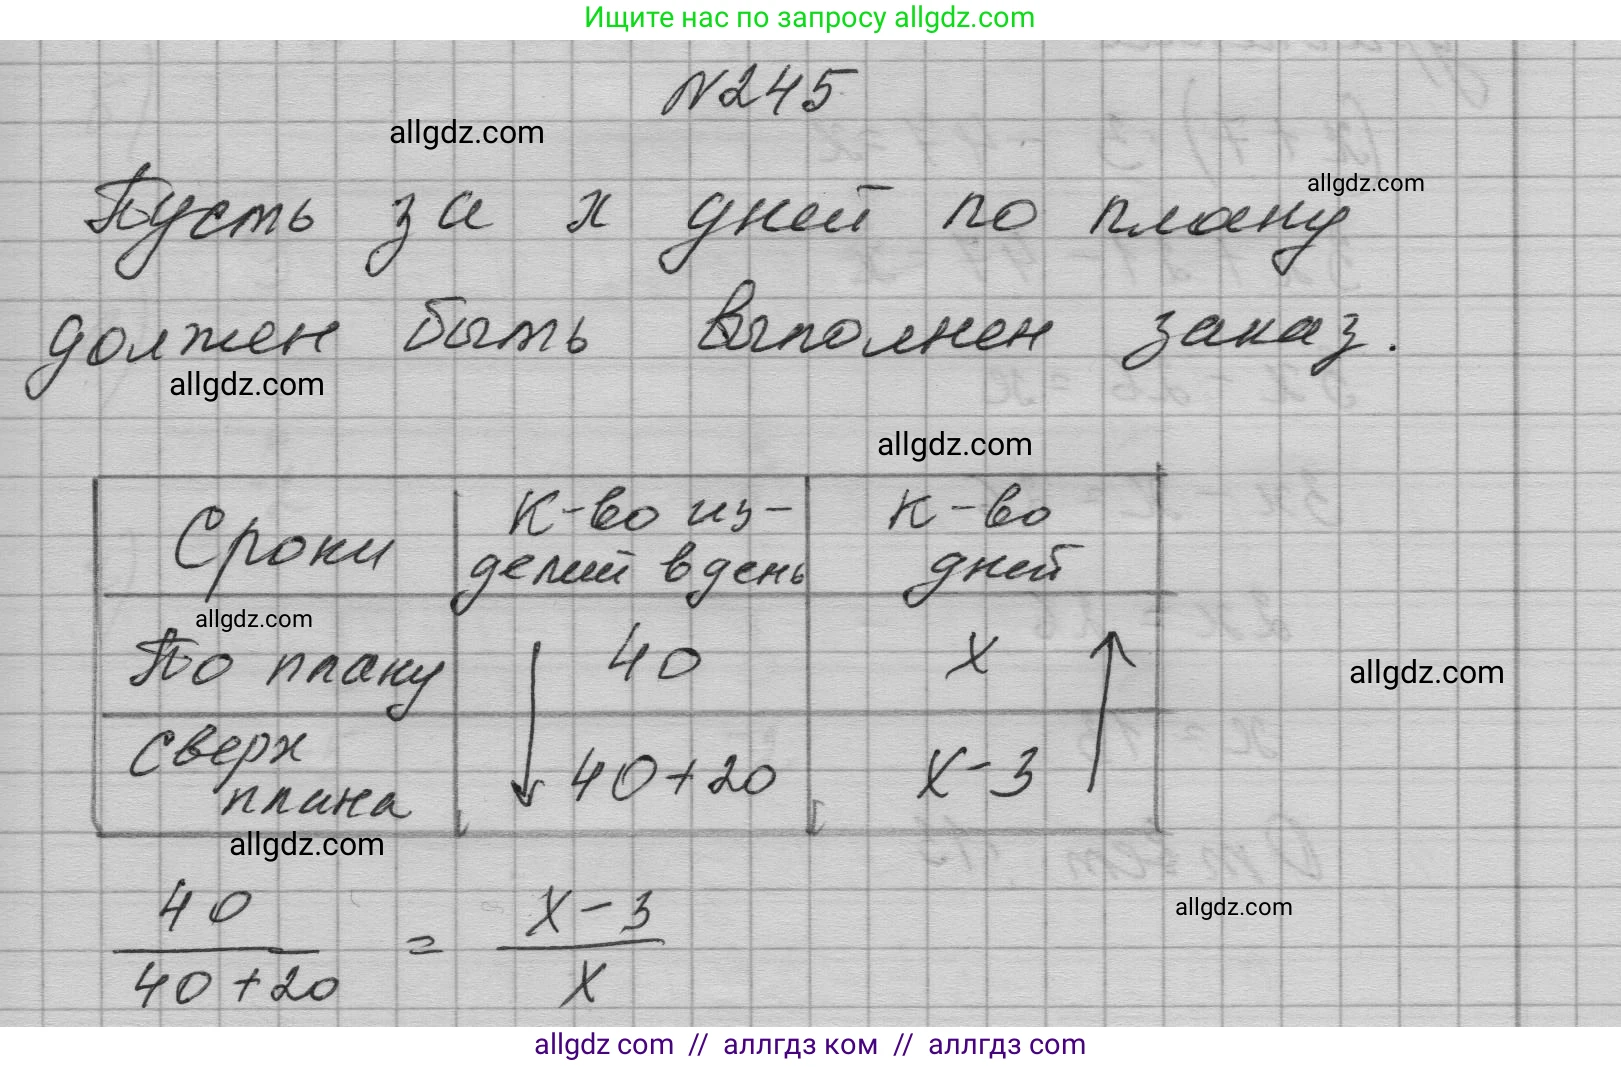 Ищите нас по запросу allgdz.com
N245
allgdz.com
allgdz.com
Пусть за x дней по плану
должен быть выполнен заказ.
allgdz.com
allgdz.com
Сроки К-во из- К-во
делий в день дней
allgdz.com
По плану 40 x
allgdz.com
Сверх
плана 40+20 x-3
allgdz.com
allgdz.com
40 x-3
=
40+20 x
allgdz com // аллгдз ком // аллгдз com